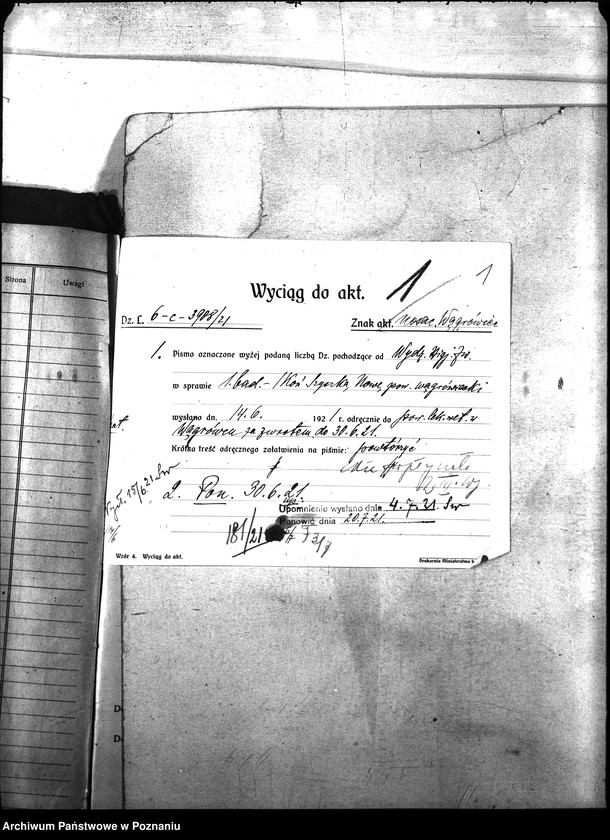 Strona Uwagi
1 1
Wyciąg do akt.
Dz. L. 6-c-3988/21 Znak akt. Wągrówiec
1. Pismo oznaczone wyżej podaną liczbą Dz. pochodzące od Wydz.
w sprawie 1. bad. - 1 Koń Nowe, pow. wągrowiecki
wysłano dn. 14.6. 1921 r. odręcznie do pow. lek. wet. w
Wągrówcu za zwrotem do 30.6.21.
Krótka treść odręcznego załatwienia na piśmie: powtórzyć
nie wpłynęło
2. Pon. 30.6.21.
Upomnienie wysłano dnia 4.7.21.
Ponowić dnia 20.7.21.
181/21
Wzór 4. Wyciąg do akt. Drukarnia Ministerstwa b.
D
D
Archiwum Państwowe w Poznaniu